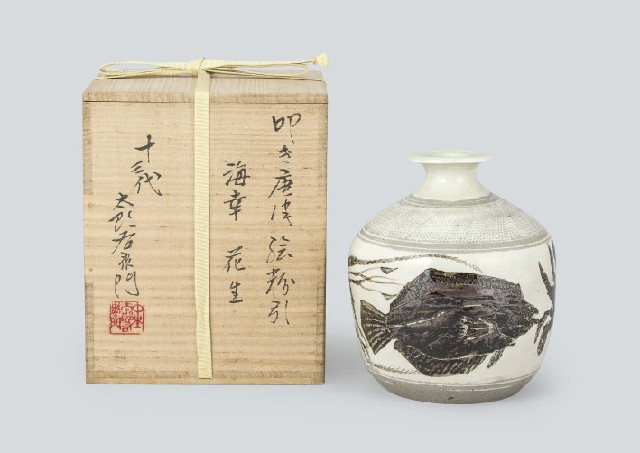 叩き唐津 絵粉引
海幸 花生
十三代
太郎右衛門